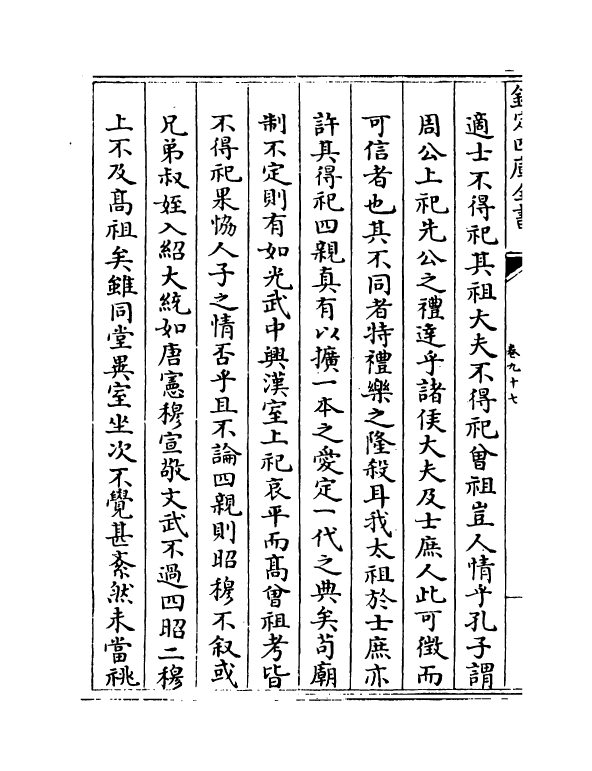 欽定四庫全書
卷九十七
適士不得祀其祖大夫不得祀曾祖豈人情乎孔子謂
周公上祀先公之禮達乎諸侯大夫及士庶人此可徵而
可信者也其不同者特禮樂之隆殺耳我太祖於士庶亦
許其得祀四親真有以擴一本之愛定一代之典矣茍廟
制不定則有如光武中興漢室上祀哀平而髙曾祖考皆
不得祀果恊人子之情否乎且不論四親則昭穆不叙或
兄弟叔姪入紹大統如唐憲穆宣敬文武不過四昭二穆
上不及髙祖矣雖同堂異室坐次不覺甚紊然未當祧